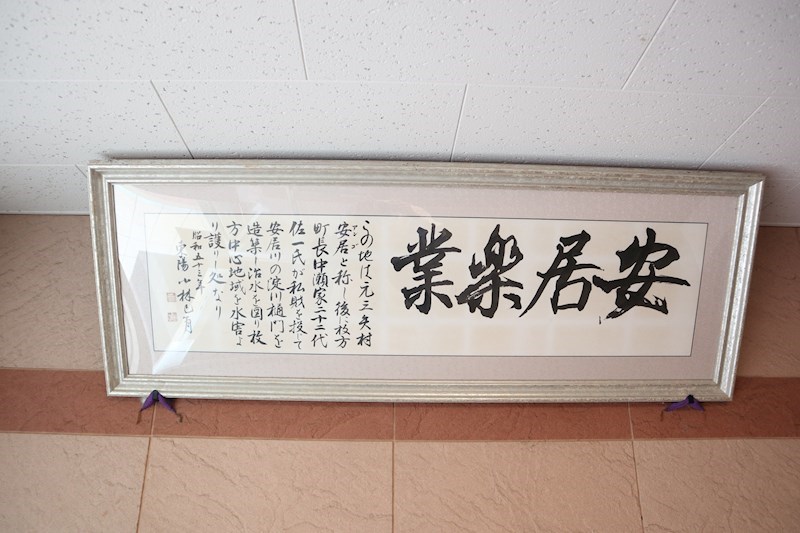 安居楽業
この地は元三矢村
安居と称し後に枚方
アンゴ
町長中瀬家二十二代
佐一氏が私財を投じて
安居川の淀川樋門を
造築し治水を図り枚
方中心地域を水害よ
り護りし処なり
昭和五十三年
小林